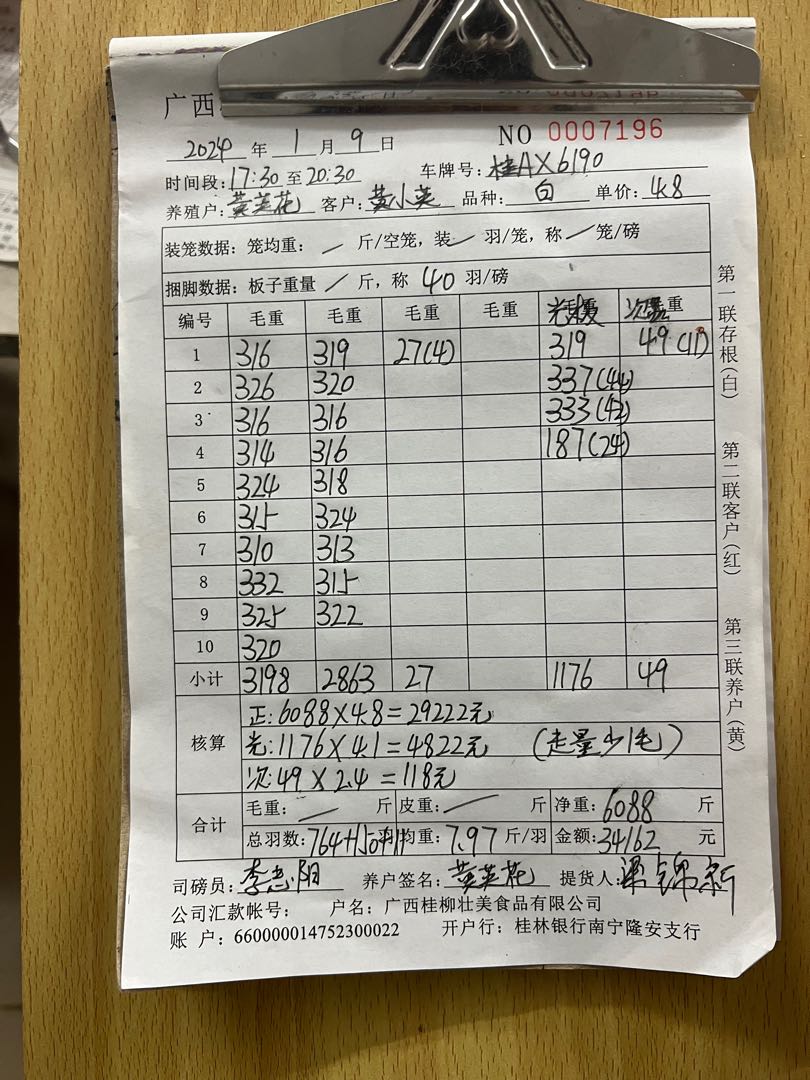 广西
2024 年 1 月 9 日 NO 0007196
时间段: 17:30 至 20:30 车牌号: 桂AX6190
养殖户: 黄英花 客户: 黄小英 品种: 白 单价: 4.8
装笼数据: 笼均重: / 斤/空笼, 装 / 羽/笼, 称 / 笼/磅
捆脚数据: 板子重量 / 斤, 称 40 羽/磅
编号 毛重 毛重 毛重 毛重
1 316 319 27(4) 319 49(11)
2 326 320 337(44)
3 316 316 333(42)
4 314 316 187(24)
5 324 318
6 315 324
7 310 313
8 332 315
9 325 322
10 320
小计 3198 2863 27 1176 49
核算
正: 6088×4.8=29222元
光: 1176×4.1=4822元 (走量少1毛)
次: 49×2.4=118元
合计
毛重: / 斤 皮重: / 斤 净重: 6088 斤
总羽数: 764+150+11 均重: 7.97 斤/羽 金额: 34162 元
司磅员: 李志阳 养户签名: 黄英花 提货人: 梁锦新
公司汇款帐号: 户名: 广西桂柳壮美食品有限公司
账 户: 660000014752300022 开户行: 桂林银行南宁隆安支行
第一联存根(白)
第二联客户(红)
第三联养户(黄)